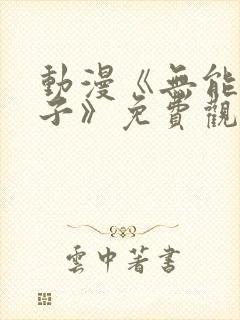 動漫《無能
子》免費觀
雲中著書